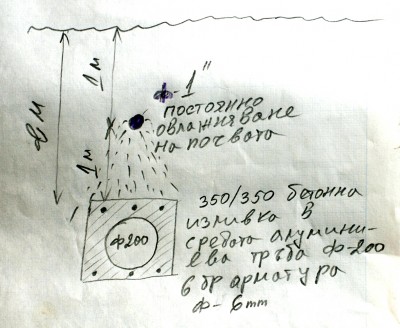 ф-1"
постоянно
овлажняване
на почвата
2 м
1м
1м
ф200
350/350 бетонна
изливка в
средата алумини-
ева тръба ф-200
6 бр арматура
ф-6mm